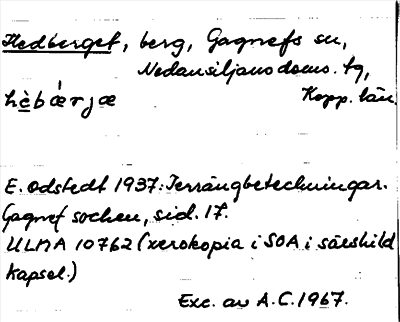 Hedberget, berg, Gagnefs sn,
Nedansiljans doms. tg,
hèbáerjæ Kopp. län.
E. Odstedt 1937: Terrängbeteckningar.
Gagnef socken, sid. 17.
ULMA 10762 (xerokopia i SOA i särskild
kapsel.)
Exc. av A.C. 1967.